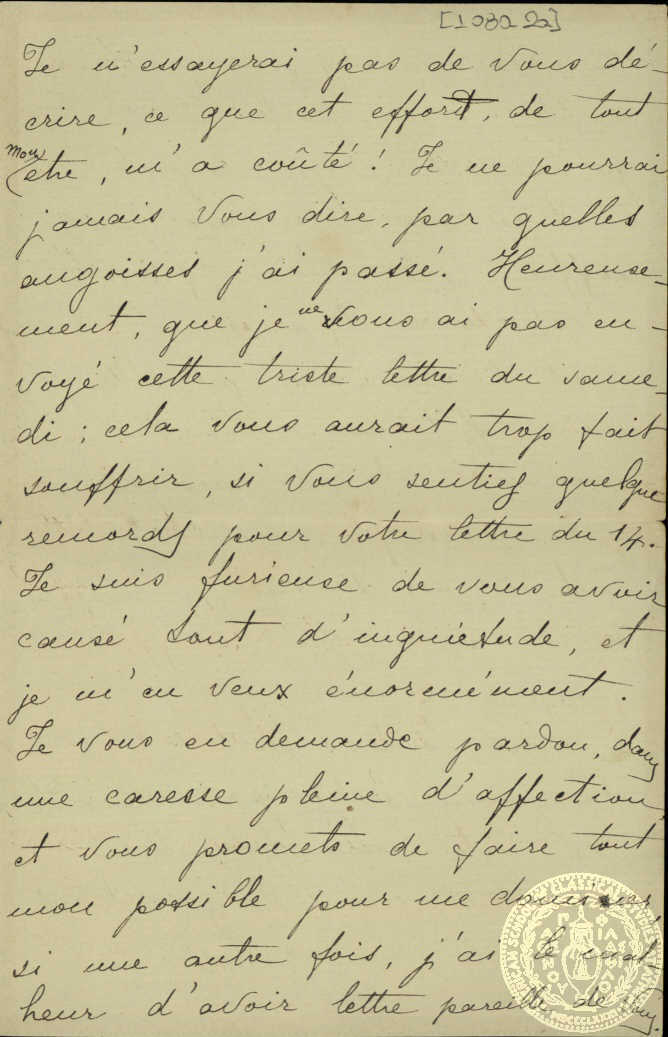 [1080 2a]
Je n'essayerai pas de vous dé-
crire, ce que cet effort, de tout
mon être, m'a coûté! Je ne pourrai
jamais vous dire, par quelles
angoisses j'ai passé. Heureuse-
ment, que je ne vous ai pas en-
voyé cette triste lettre du same-
di; cela vous aurait trop fait
souffrir, si vous sentiez quelque
remords pour votre lettre du 14.
Je suis furieuse de vous avoir
causé tant d'inquiétude, et
je m'en veux énormément.
Je vous en demande pardon, dans
une caresse pleine d'affection,
et vous promets de faire tout
mon possible pour me dominer,
si une autre fois, j'ai le mal-
heur d'avoir lettre pareille de vous.